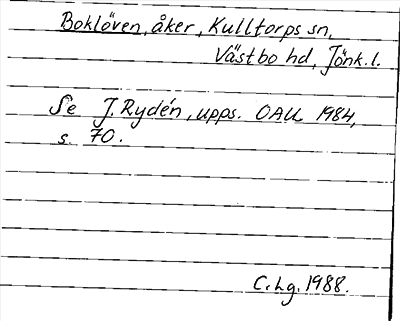 Boklöven, åker, Kulltorps sn,
Västbo hd, Jönk. l.
Se J. Rydén, upps. OAU 1984,
s. 70.
C. Lg. 1988.